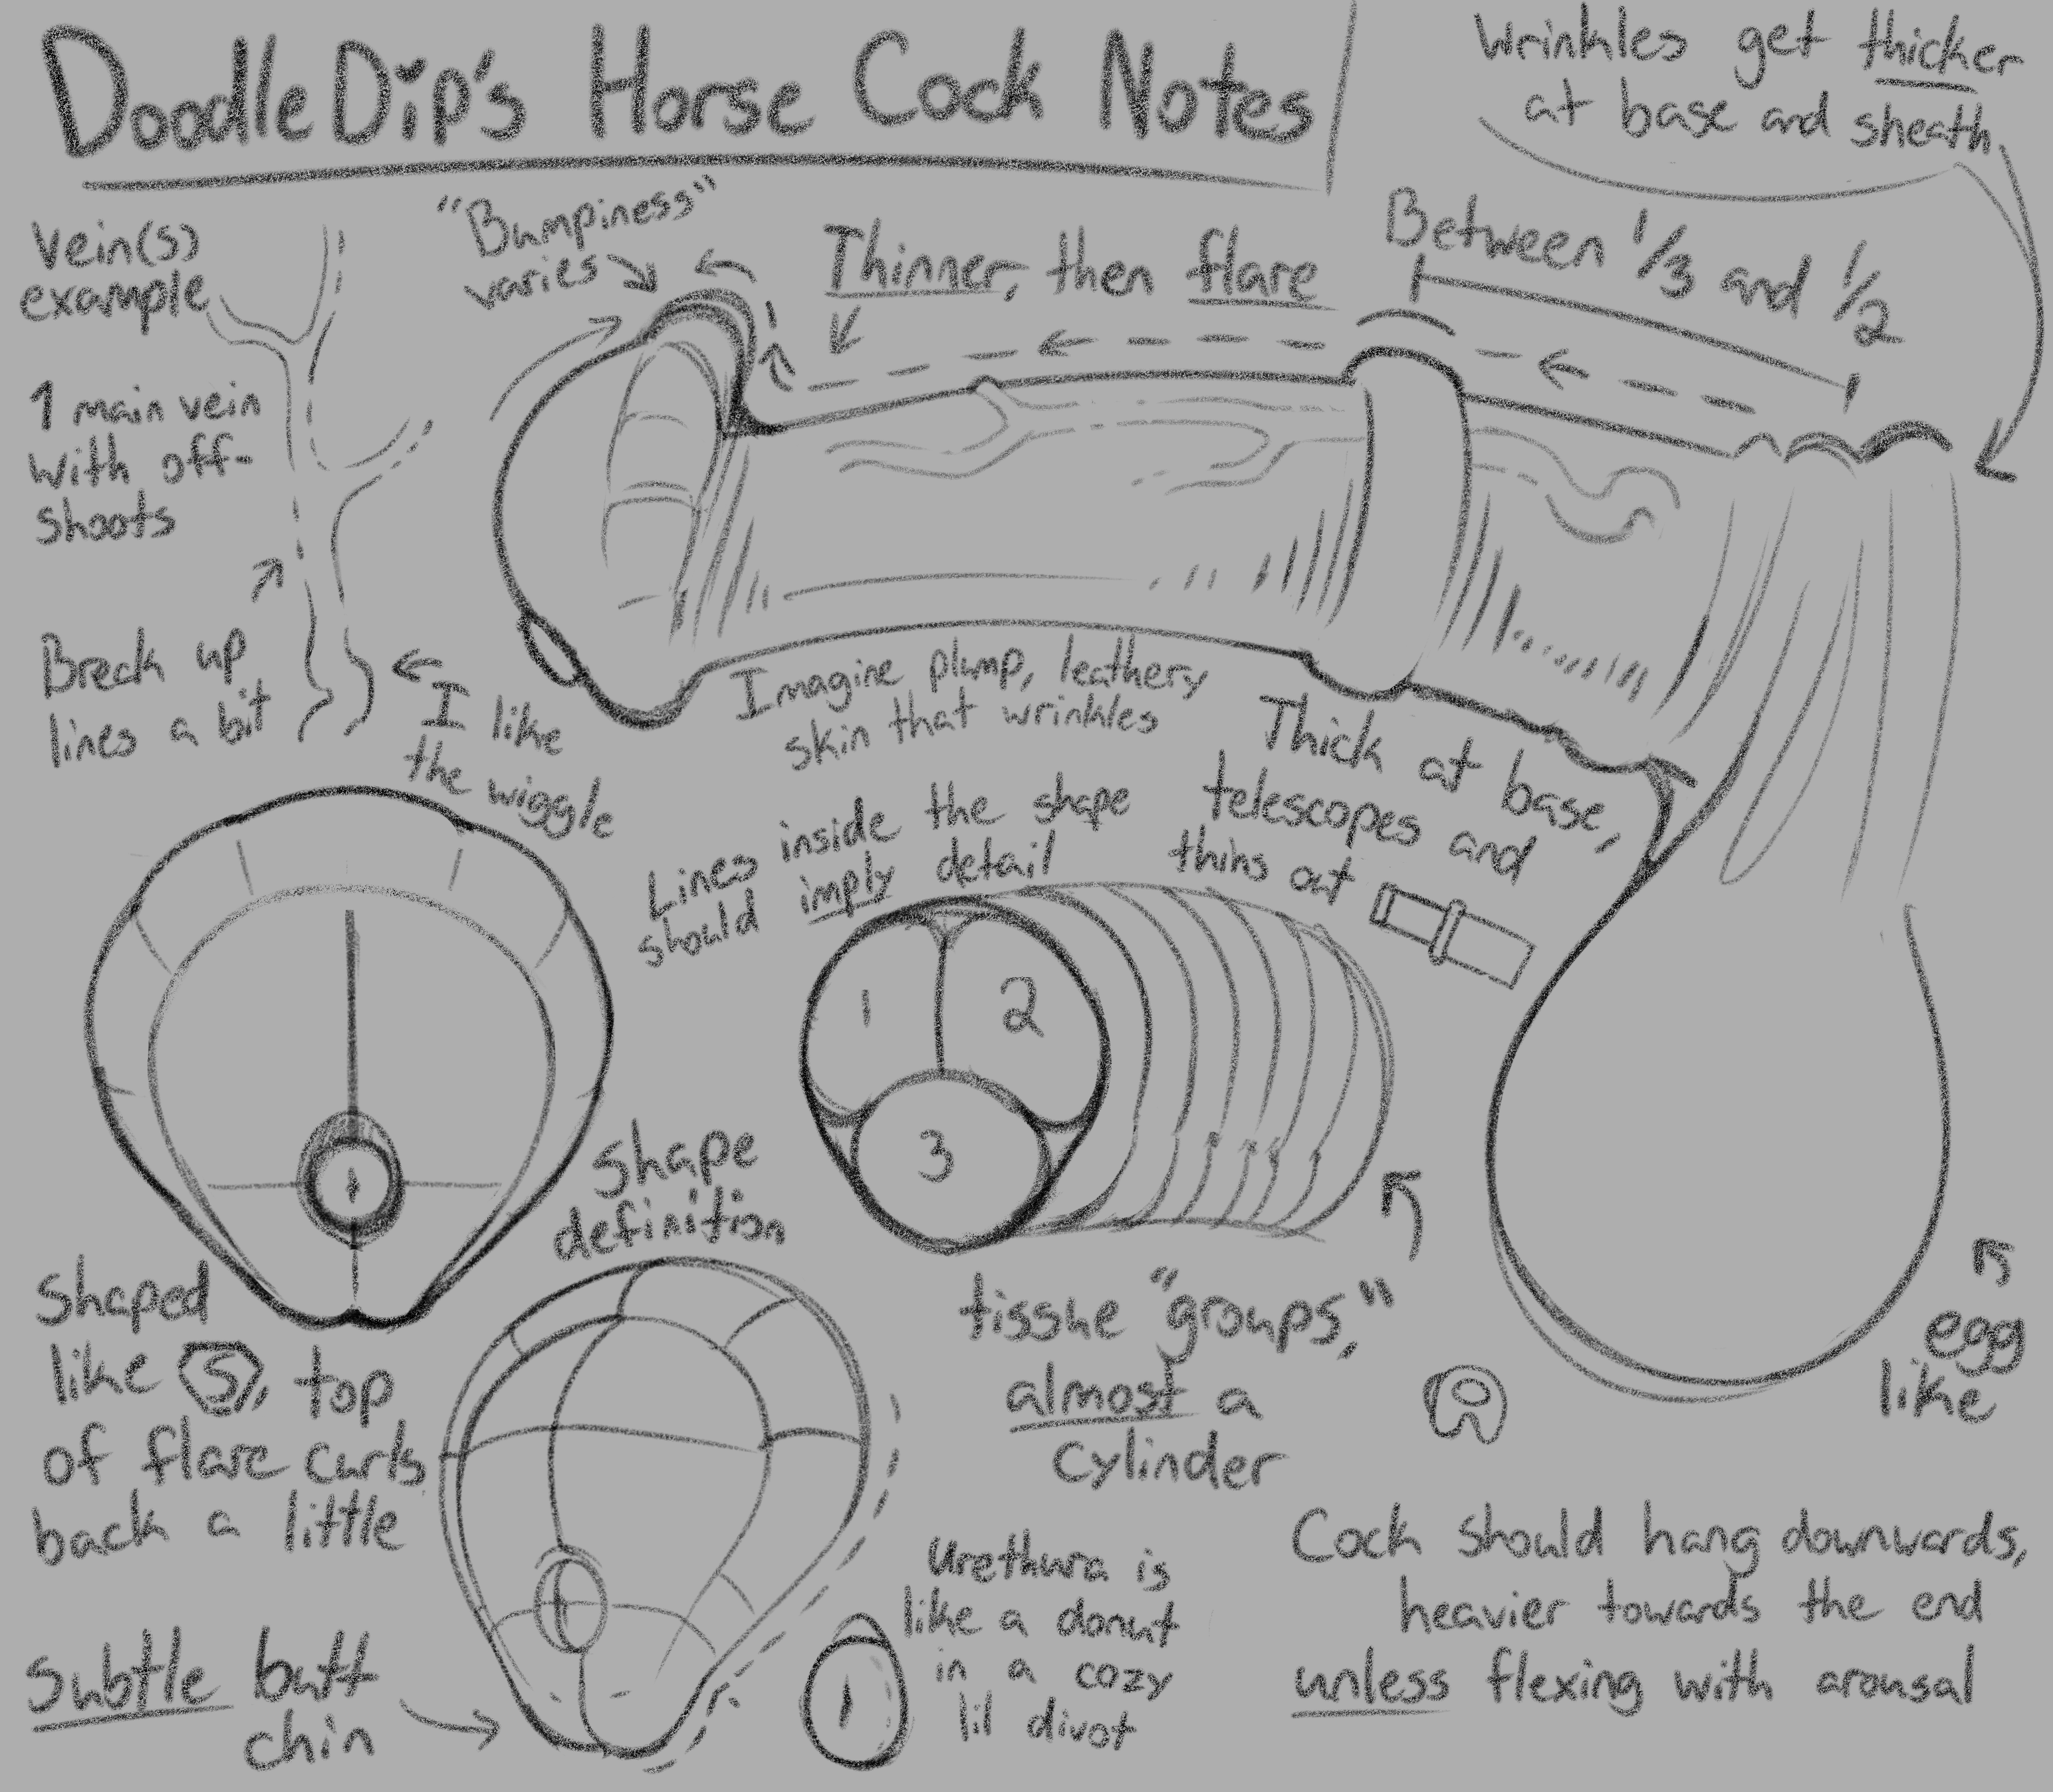 DoodleDip's Horse Cock Notes
Wrinkles get thicker
at base and sheath
Vein(s)
example
1 main vein
with off-
shoots
Break up
lines a bit
I like
the wiggle
"Bumpiness"
varies
Thinner, then flare
Between 1/3 and 1/2
Imagine plump, leathery
skin that wrinkles
Thick at base,
telescopes and
thins out
Lines inside the shape
should imply detail
1
2
3
shape
definition
Shaped
like S, top
of flare curls
back a little
Subtle butt
chin
tissue "groups,"
almost a
cylinder
egg
like
Urethura is
like a donut
in a cozy
lil divot
Cock should hang downwards,
heavier towards the end
unless flexing with arousal